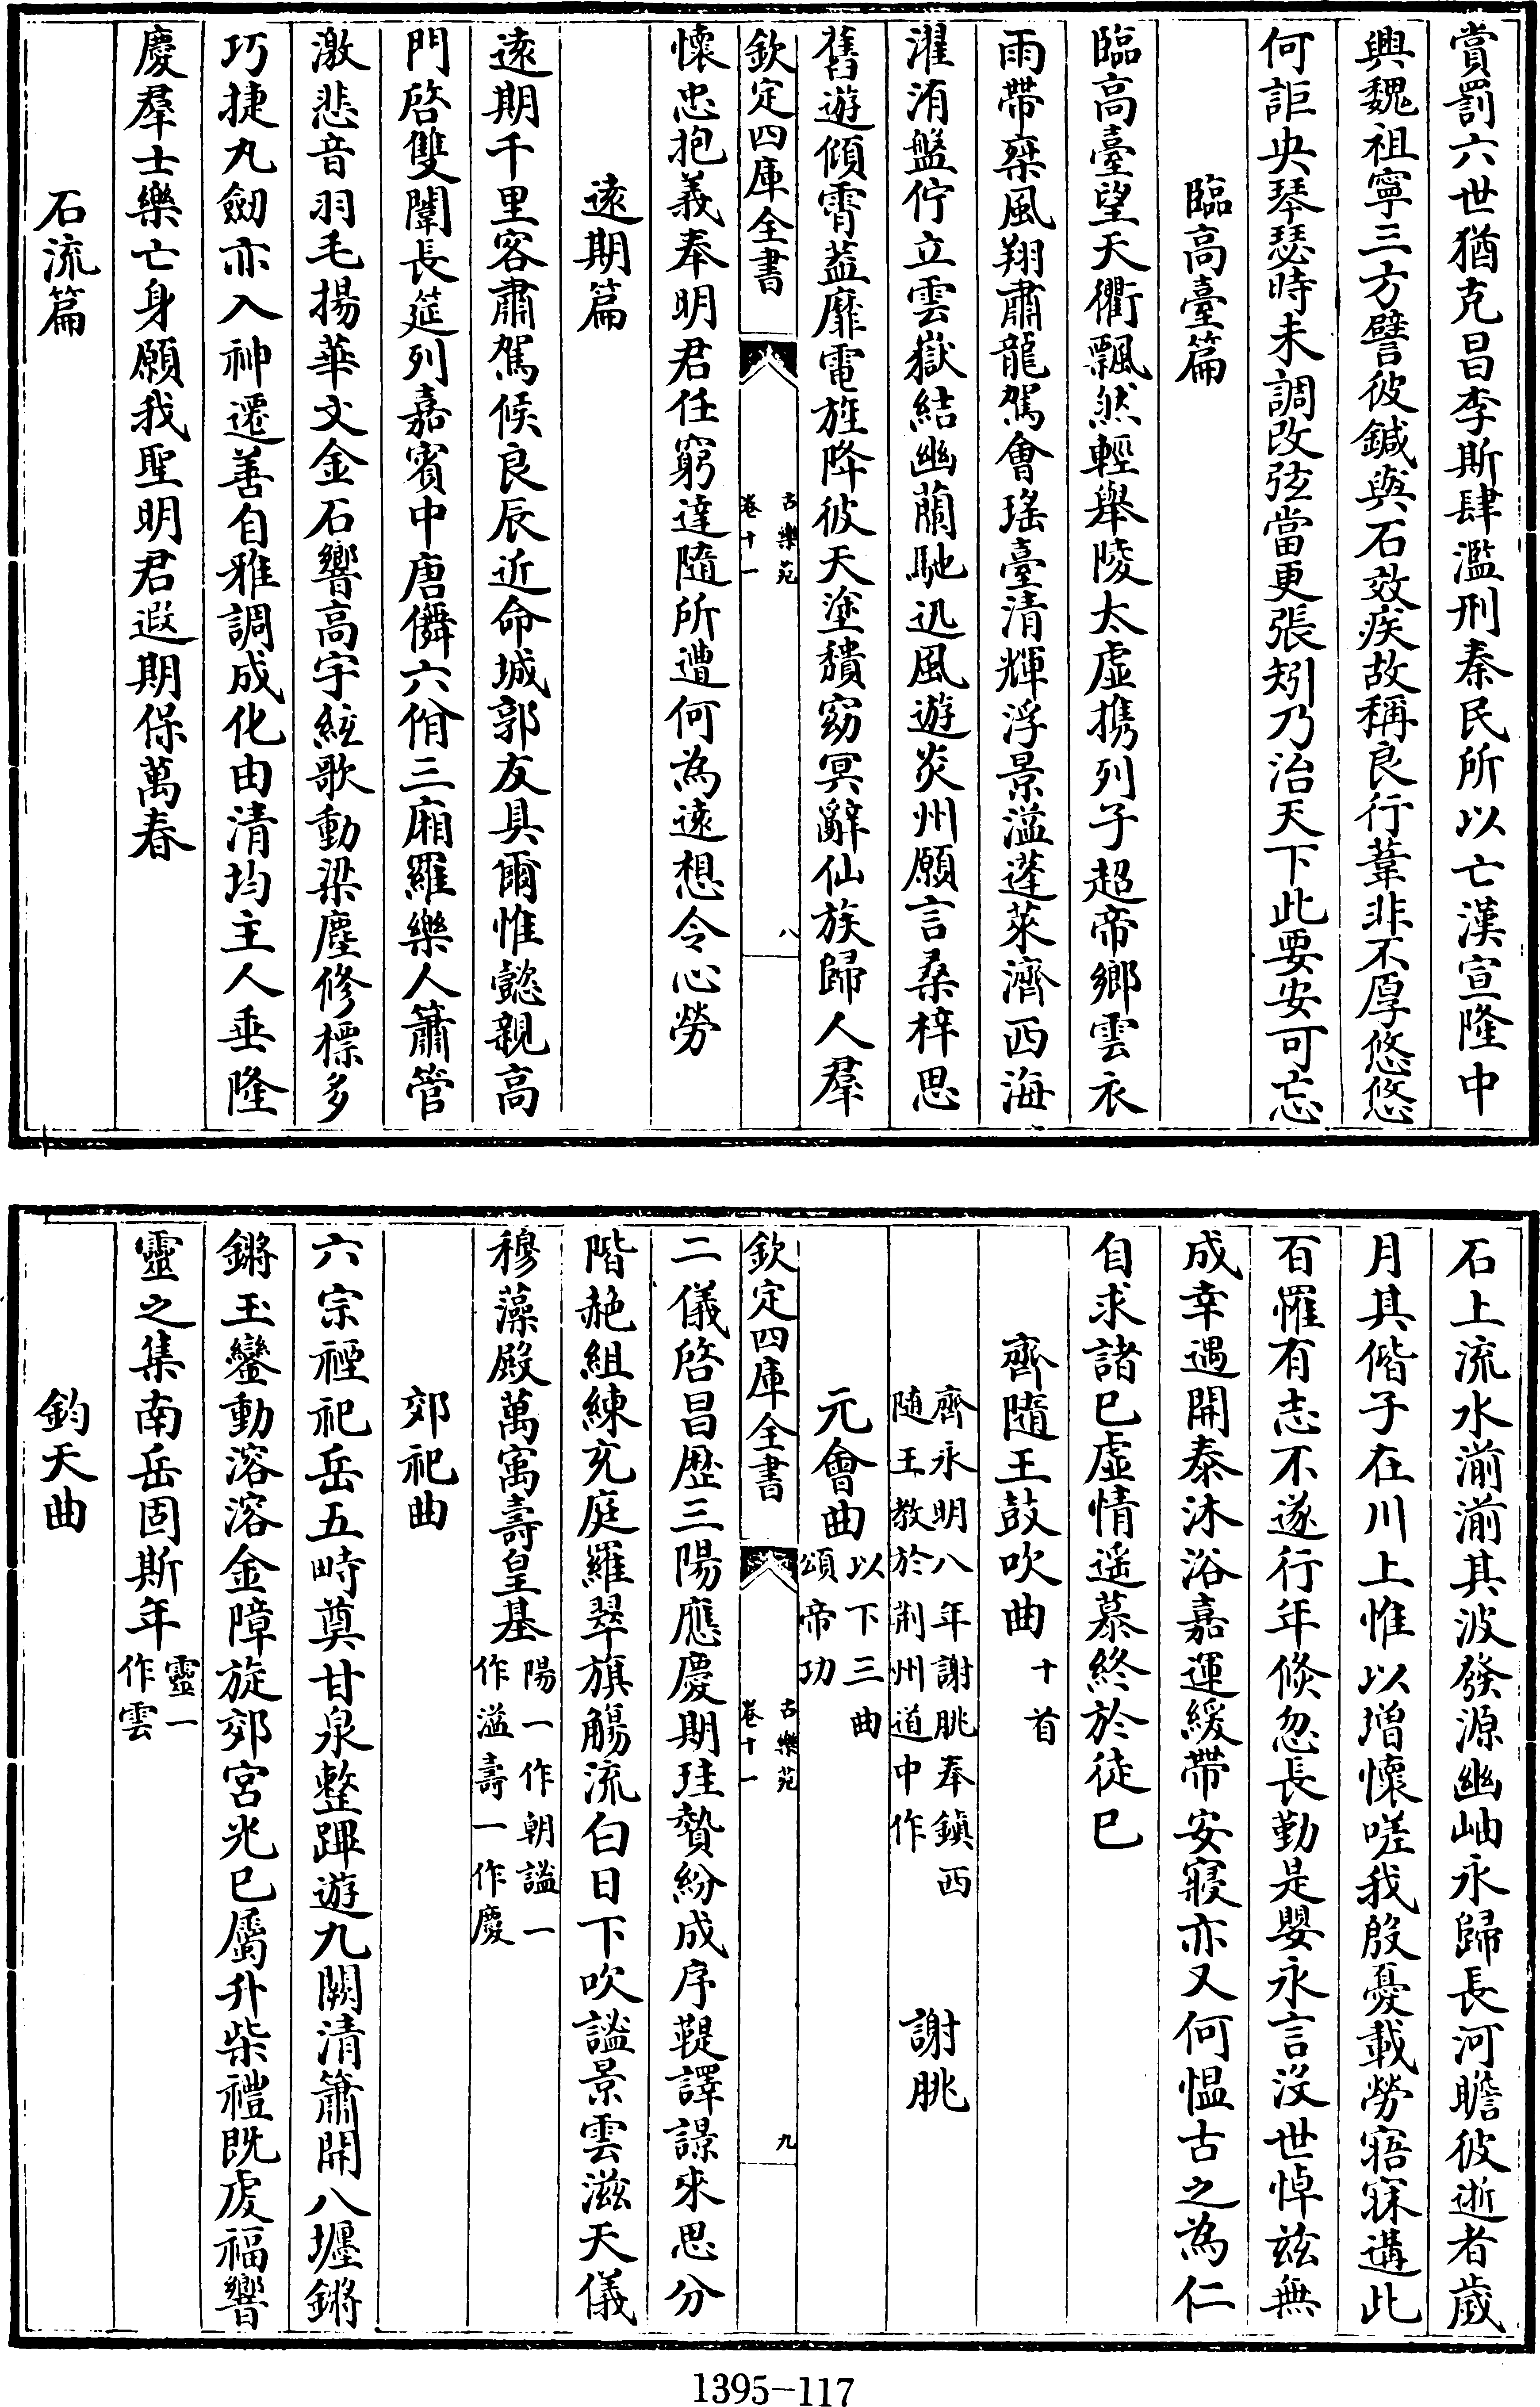 賞罰六世猶克昌李斯肆濫刑秦民所以亡漢宣隆中
興魏祖寧三方譬彼鍼與石效疾故稱良行葦非不厚悠悠
何詎央琴瑟時未調改弦當更張矧乃治天下此要安可忘
臨高臺篇
臨高臺望天衢飄然輕舉陵太虛携列子超帝鄉雲衣
雨帶乘風翔肅龍駕會瑤臺清輝浮景溢蓬萊濟西海
濯洧盤佇立雲嶽結幽蘭馳迅風遊炎州願言桑梓思
舊遊傾霄蓋靡電旌降彼天塗穨窈冥辭仙族歸人羣
欽定四庫全書
古樂苑
卷十一
八
懷忠抱義奉明君任窮達隨所遭何為遠想令心勞
遠期篇
遠期千里客肅駕候良辰近命城郭友具爾惟懿親高
門啓雙闈長筵列嘉賓中唐儛六佾三廂羅樂人簫管
激悲音羽毛揚華文金石響高宇絃歌動梁塵修標多
巧捷丸劒亦入神遷善自雅調成化由清均主人垂隆
慶羣士樂亡身願我聖明君遐期保萬春
石流篇
石上流水湔湔其波發源幽岫永歸長河瞻彼逝者歲
月其偕子在川上惟以增懷嗟我殷憂載勞寤寐遘此
百罹有志不遂行年倏忽長勤是嬰永言沒世悼兹無
成幸遇開泰沐浴嘉運緩帶安寢亦又何愠古之為仁
自求諸已虛情遥慕終於徒已
齊隨王鼓吹曲十首
齊永明八年謝朓奉鎮西
随王教於荆州道中作
謝朓
元會曲以下三曲
頌帝功
欽定四庫全書
古樂苑
卷十一
九
二儀啓昌歷三陽應慶期珪贄紛成序鞮譯憬來思分
階艴組練充庭羅翠旗觴流白日下吹謐景雲滋天儀
穆藻殿萬㝢壽皇基陽一作朝謐一
作溢壽一作慶
郊祀曲
六宗禋祀岳五畤奠甘泉整蹕遊九闕清簫開八壥鏘
鏘玉鑾動溶溶金障旋郊宮光已屬升柴禮既虔福響
靈之集南岳固斯年靈一
作雲
鈞天曲
1395-117